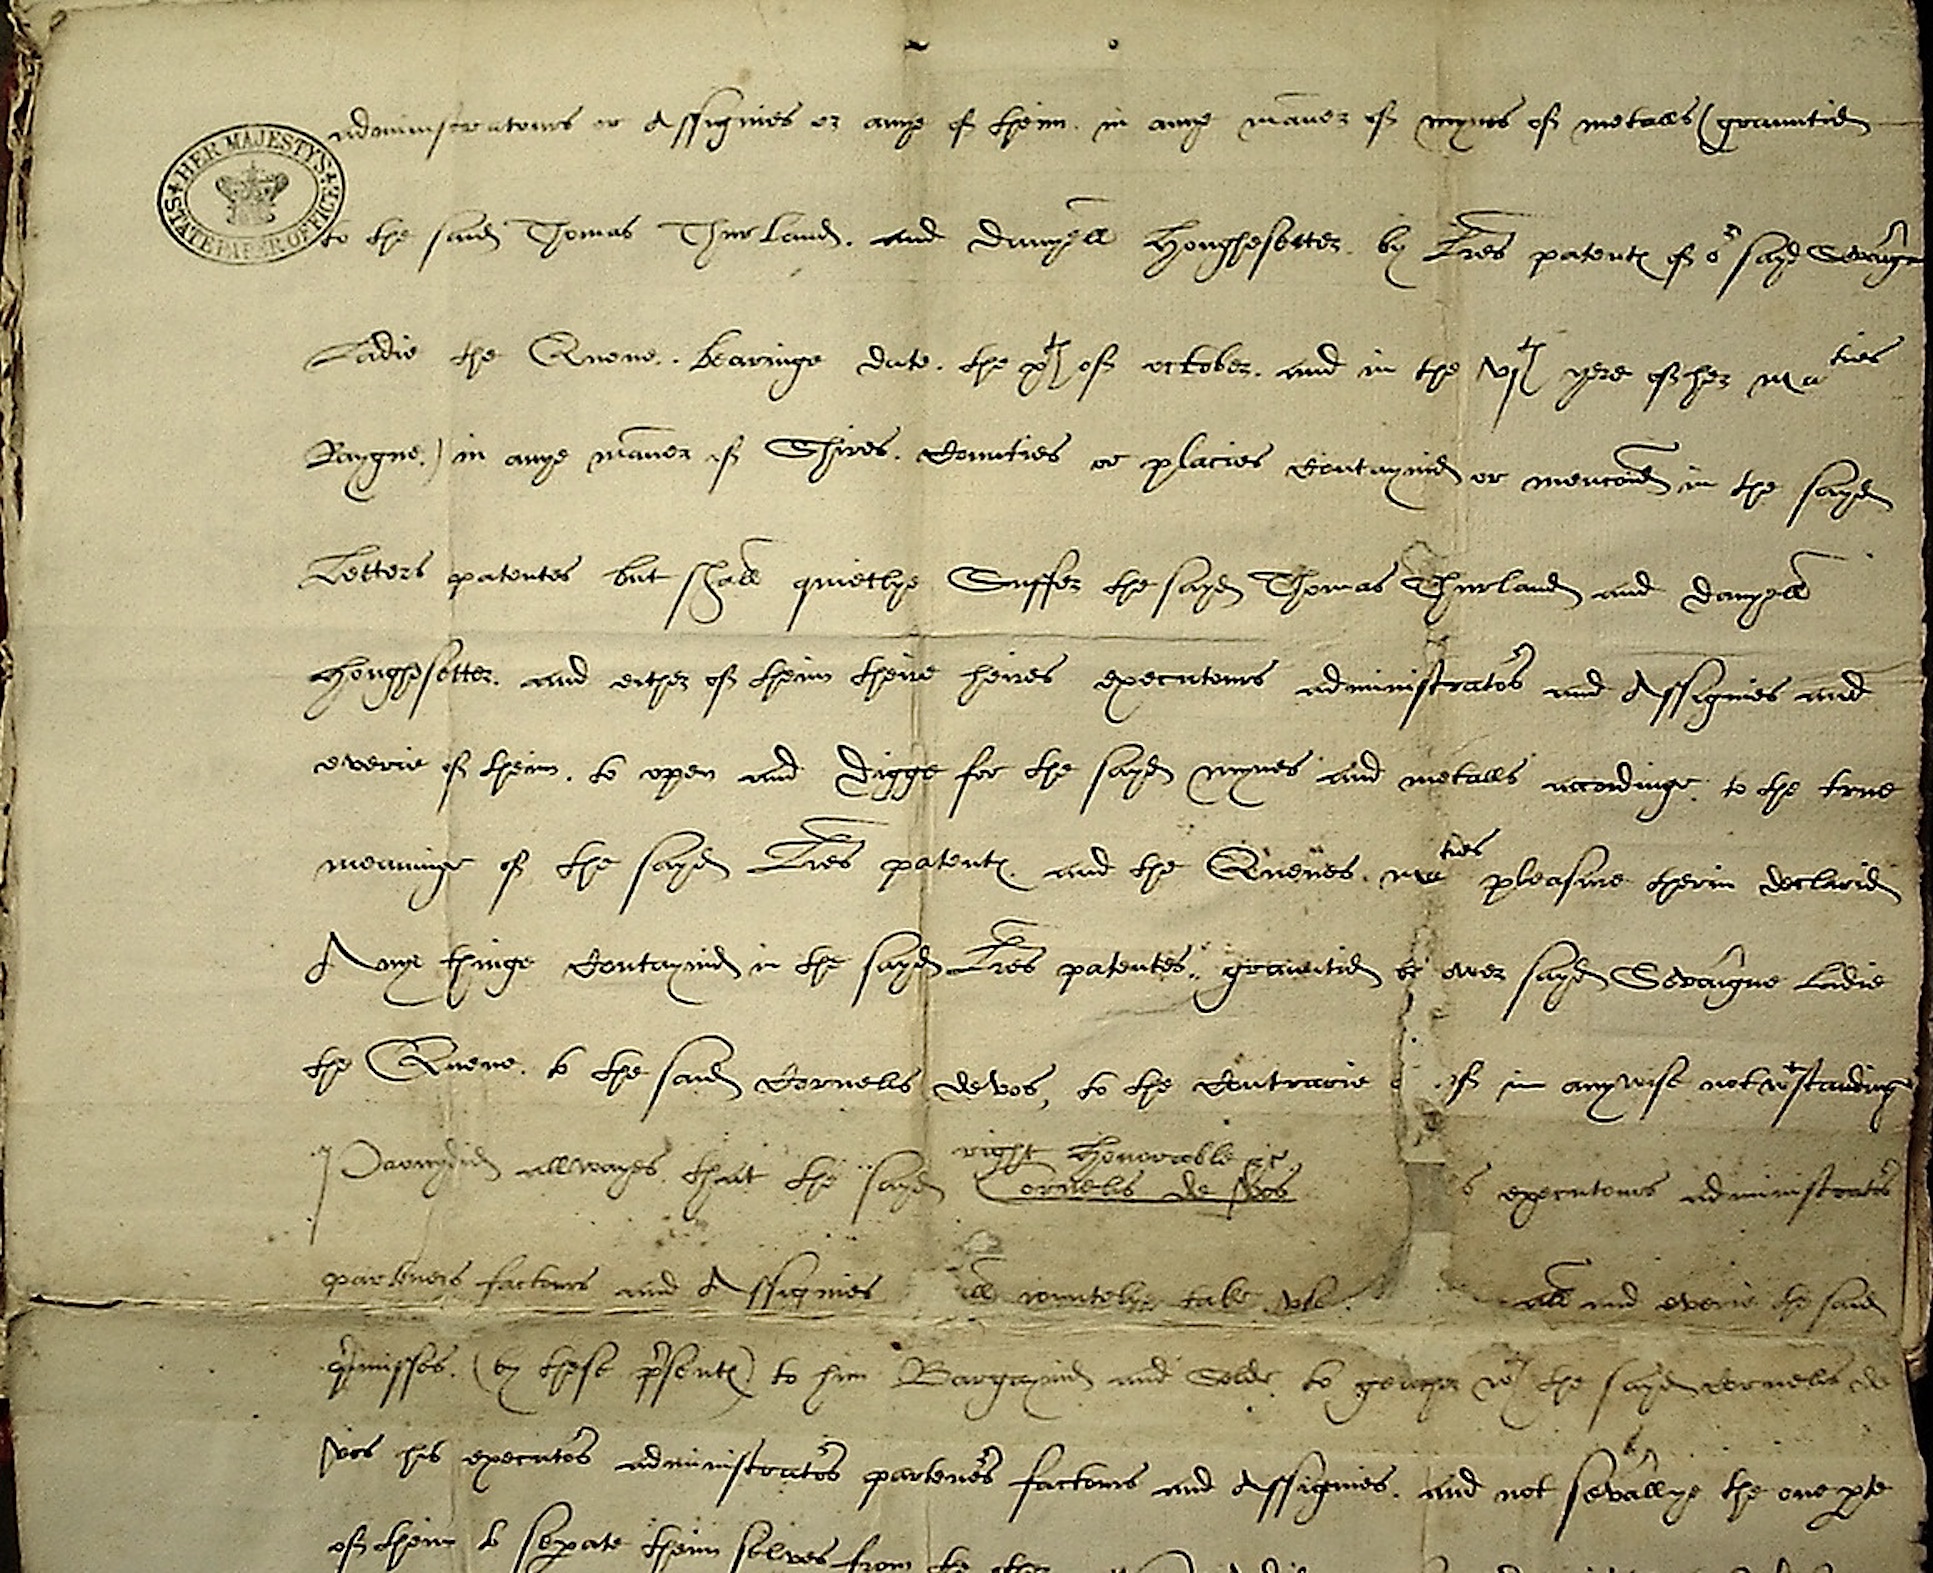 administratours or Assignies or anye of theim. in anye maner of mynes of metalls (grauntid
HER MAJESTYS STATE PAPER OFFICE
to the said Thomas Thurland. and Danyell Houghesetter. by Lres patents of or sayd Sovaigne
Ladie the Quene. bearinge date. the xth of october. and in the vjth yere of her maties
Raygne.) in anye maner of Shires. Counties or placies Contaynid or menconed in the sayd
Letters patentes but shall quietlye Suffer the sayd Thomas Thurland and Danyell
Houghsetter. and either of theim theire heires executours administrators and Assignies and
everie of theim. to open and Digge for the sayd mynes and metalls accordinge. to the true
meaninge of the sayd Lres patents. and the Quenes. maties pleasure therin declarid
Anye thinge Contaynid in the sayd Lres patentes. grauntid by over sayd Sovaigne Ladie
the Quene. to the said Cornelis devos, to the Contrarie of in anywise notwtstanding
right Honorable &c
Provydid allwayes. that the sayd Cornelis de Vos executours administrators
parteners factours and Assignies all take all and everie the said
pmisses. (by these psents) to him Bargaynid and Solde. to geather wt the sayd Cornelis de
Vos his executors administrators parteners factours and Assignies. and not sevallye the one pte
of theim to sepate theim selves from the other